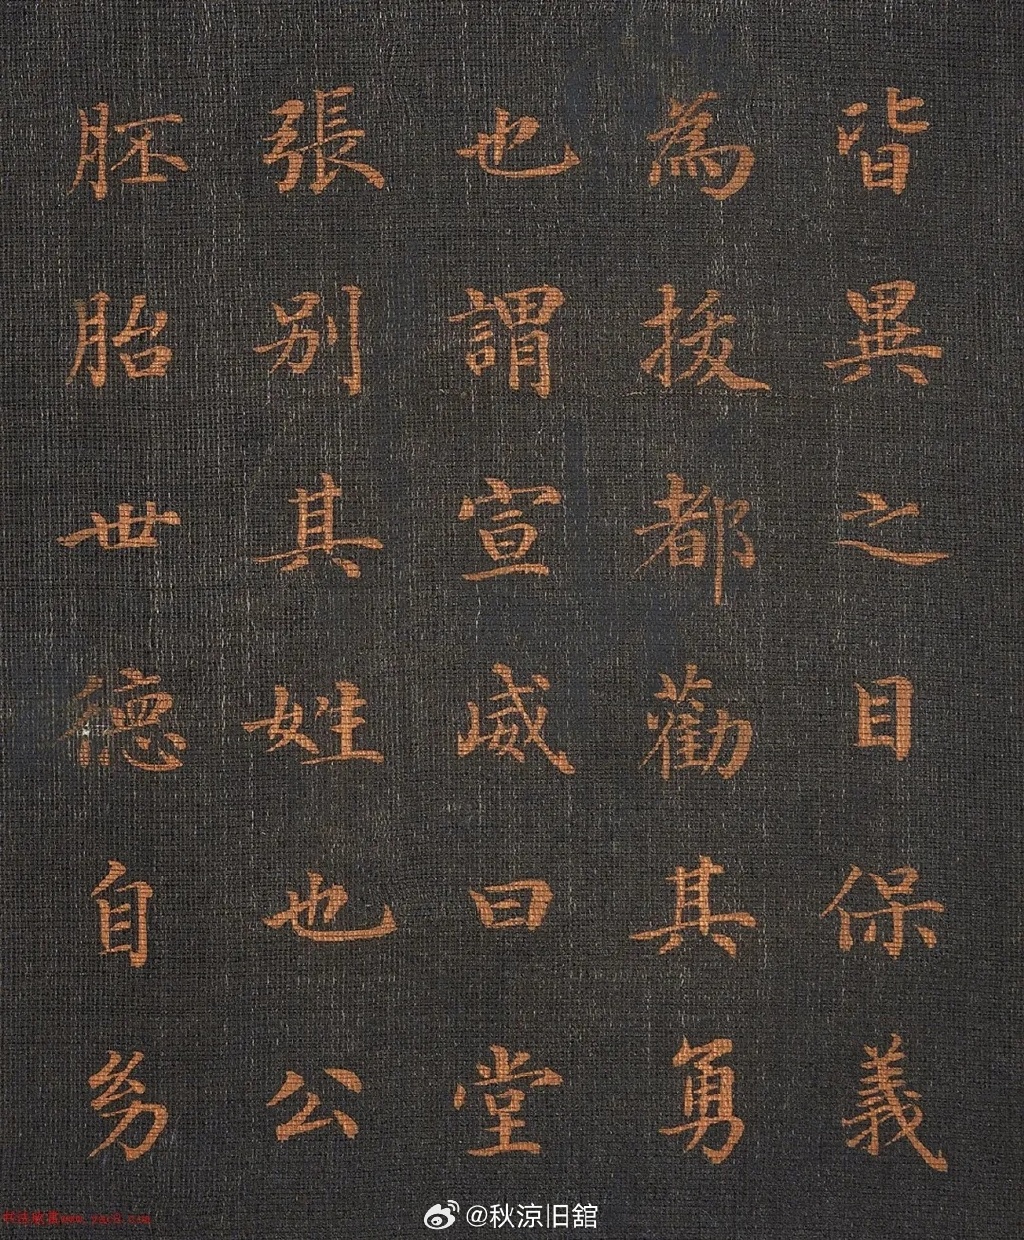 皆異之目保義
為拔都勸其勇
也謂宣威曰堂
張別其姓也公
胚胎世德自㓜
@秋涼旧舘